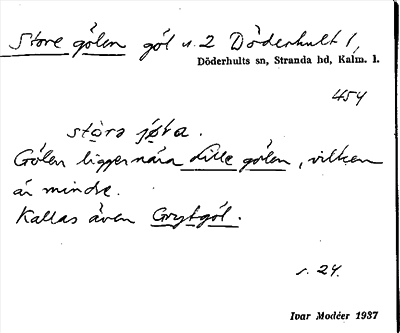 Store gölen göl n. 2 Döderhult 1,
Döderhults sn, Stranda hd, Kalm. l.
454
Gölen ligger nära Lille gölen, vilken
är mindre.
Kallas även Grytgöl.
s. 24.
Ivar Modéer 1937